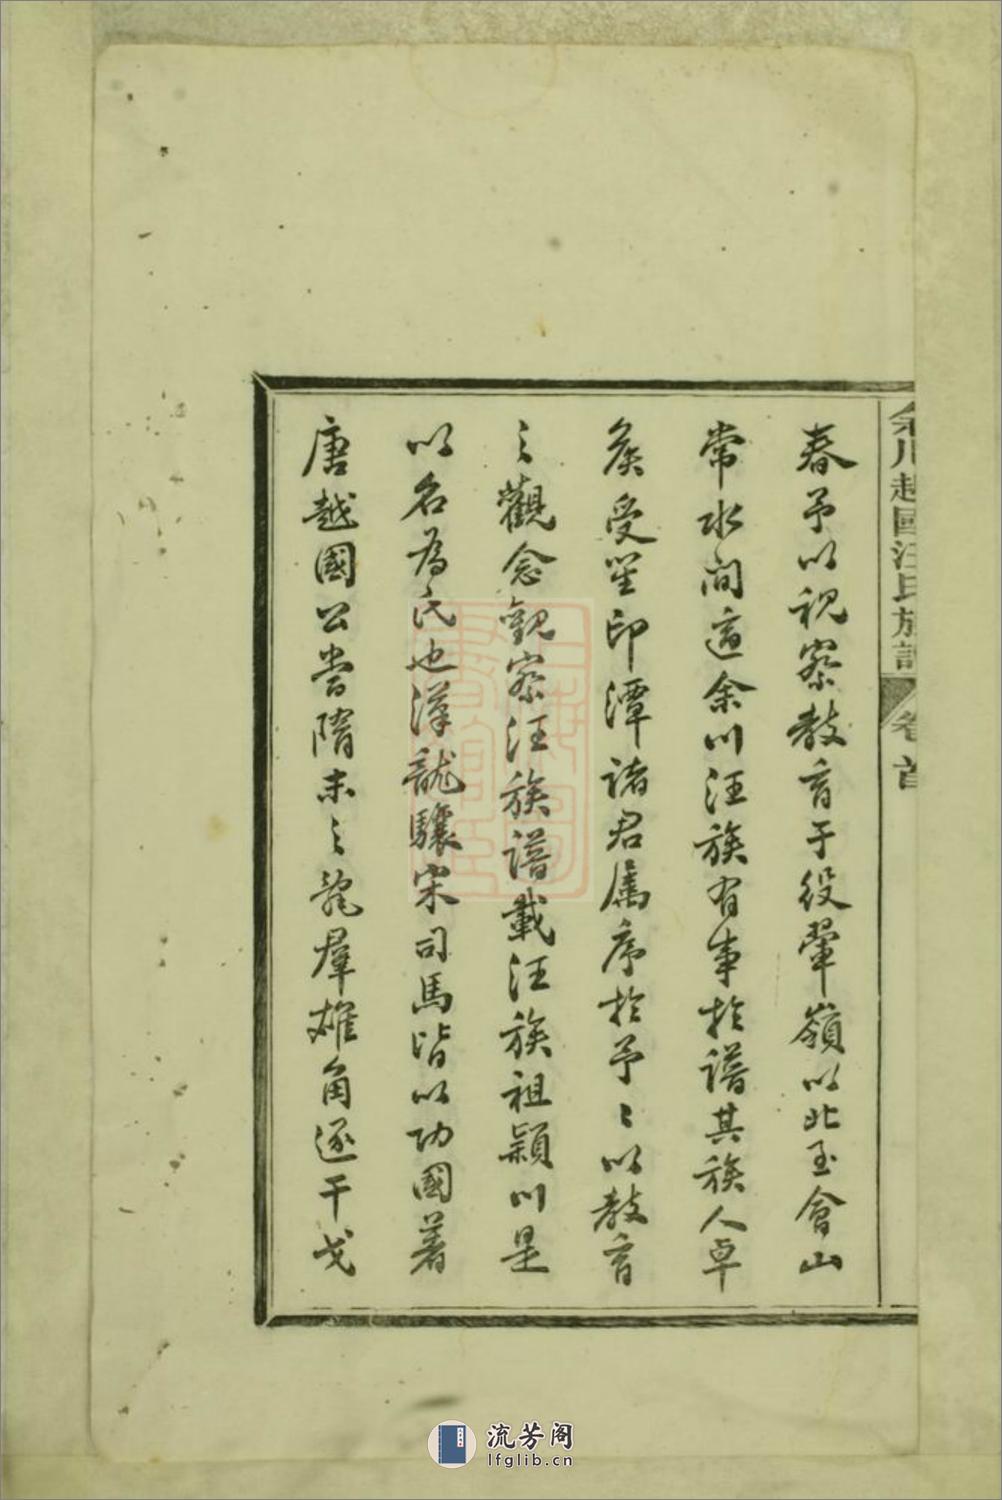 余川越國汪氏族譜 卷首
春予以視察教育于役翚嶺以北至會山
常水間適余川汪族有事於譜其族人卓
矦受笙印潭諸君属序於予〻以教育
之觀念觀察汪族譜載汪族祖頴川是
以名為氏也漢龍驤宋司馬皆以功國著
唐越國公當隋末之亂羣雄角逐干戈
流芳阁
lfglib.cn